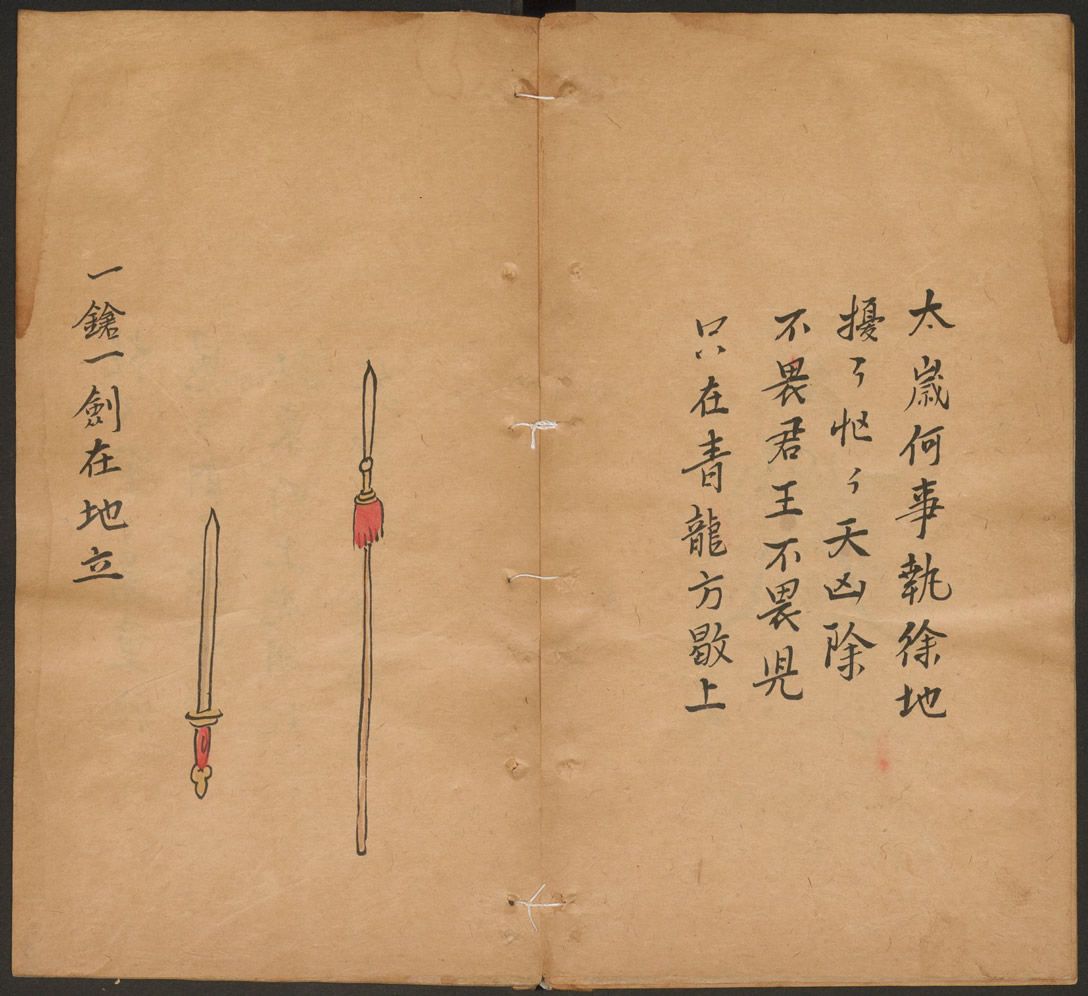 太歲何事執徐地
擾々忷々天凶除
不畏君王不畏児
只在青龍方歇上
一鎗一劍在地立